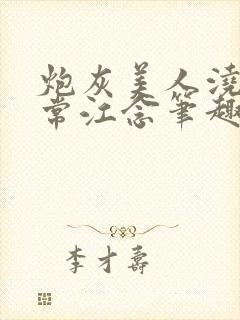 炮灰美人浇
常江念笔趣
李才寿